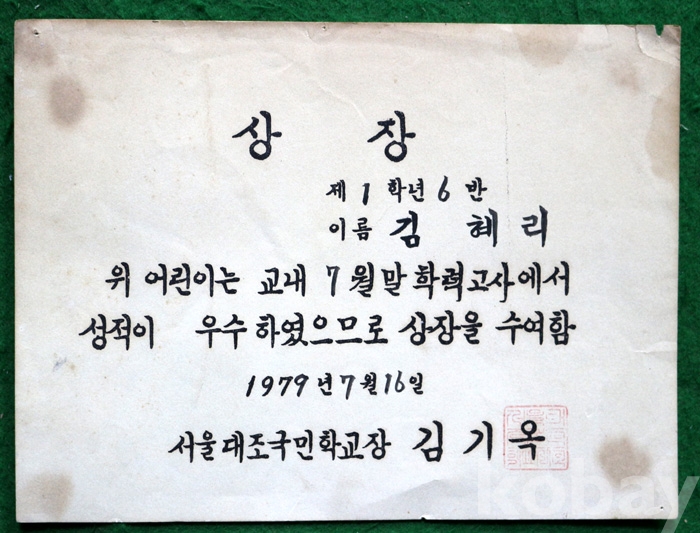 상 장
제 1 학년 6 반
이름 김 혜 리
위 어린이는 교내 7월말 학력고사에서
성적이 우수하였으므로 상장을 수여함
1979년 7월 16일
서울대조국민학교장 김 기 옥
kobay